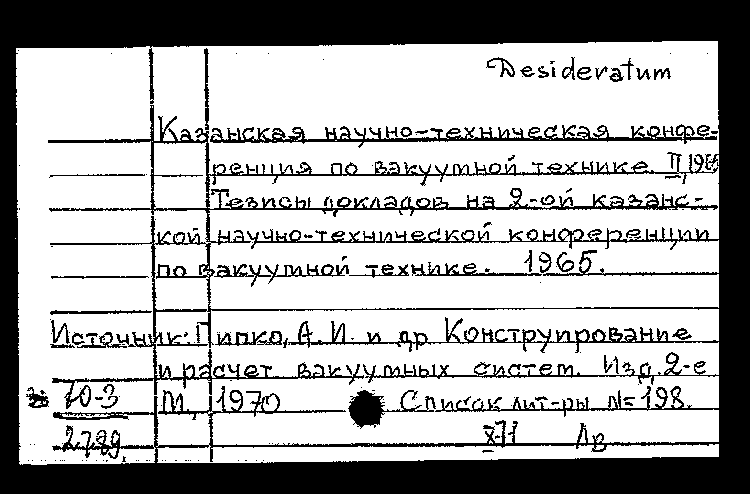 Desideratum
Казанская научно-техническая конфе-
ренция по вакуумной технике. II, 1965
Тезисы докладов на 2-ой казанс-
кой научно-технической конференции
по вакуумной технике. 1965.
Источник: Пипко, А. И. и др Конструирование
и расчет вакуумных систем. Изд. 2-е
10-3 М., 1970 Список лит-ры №198.
2789. X-71 Лв